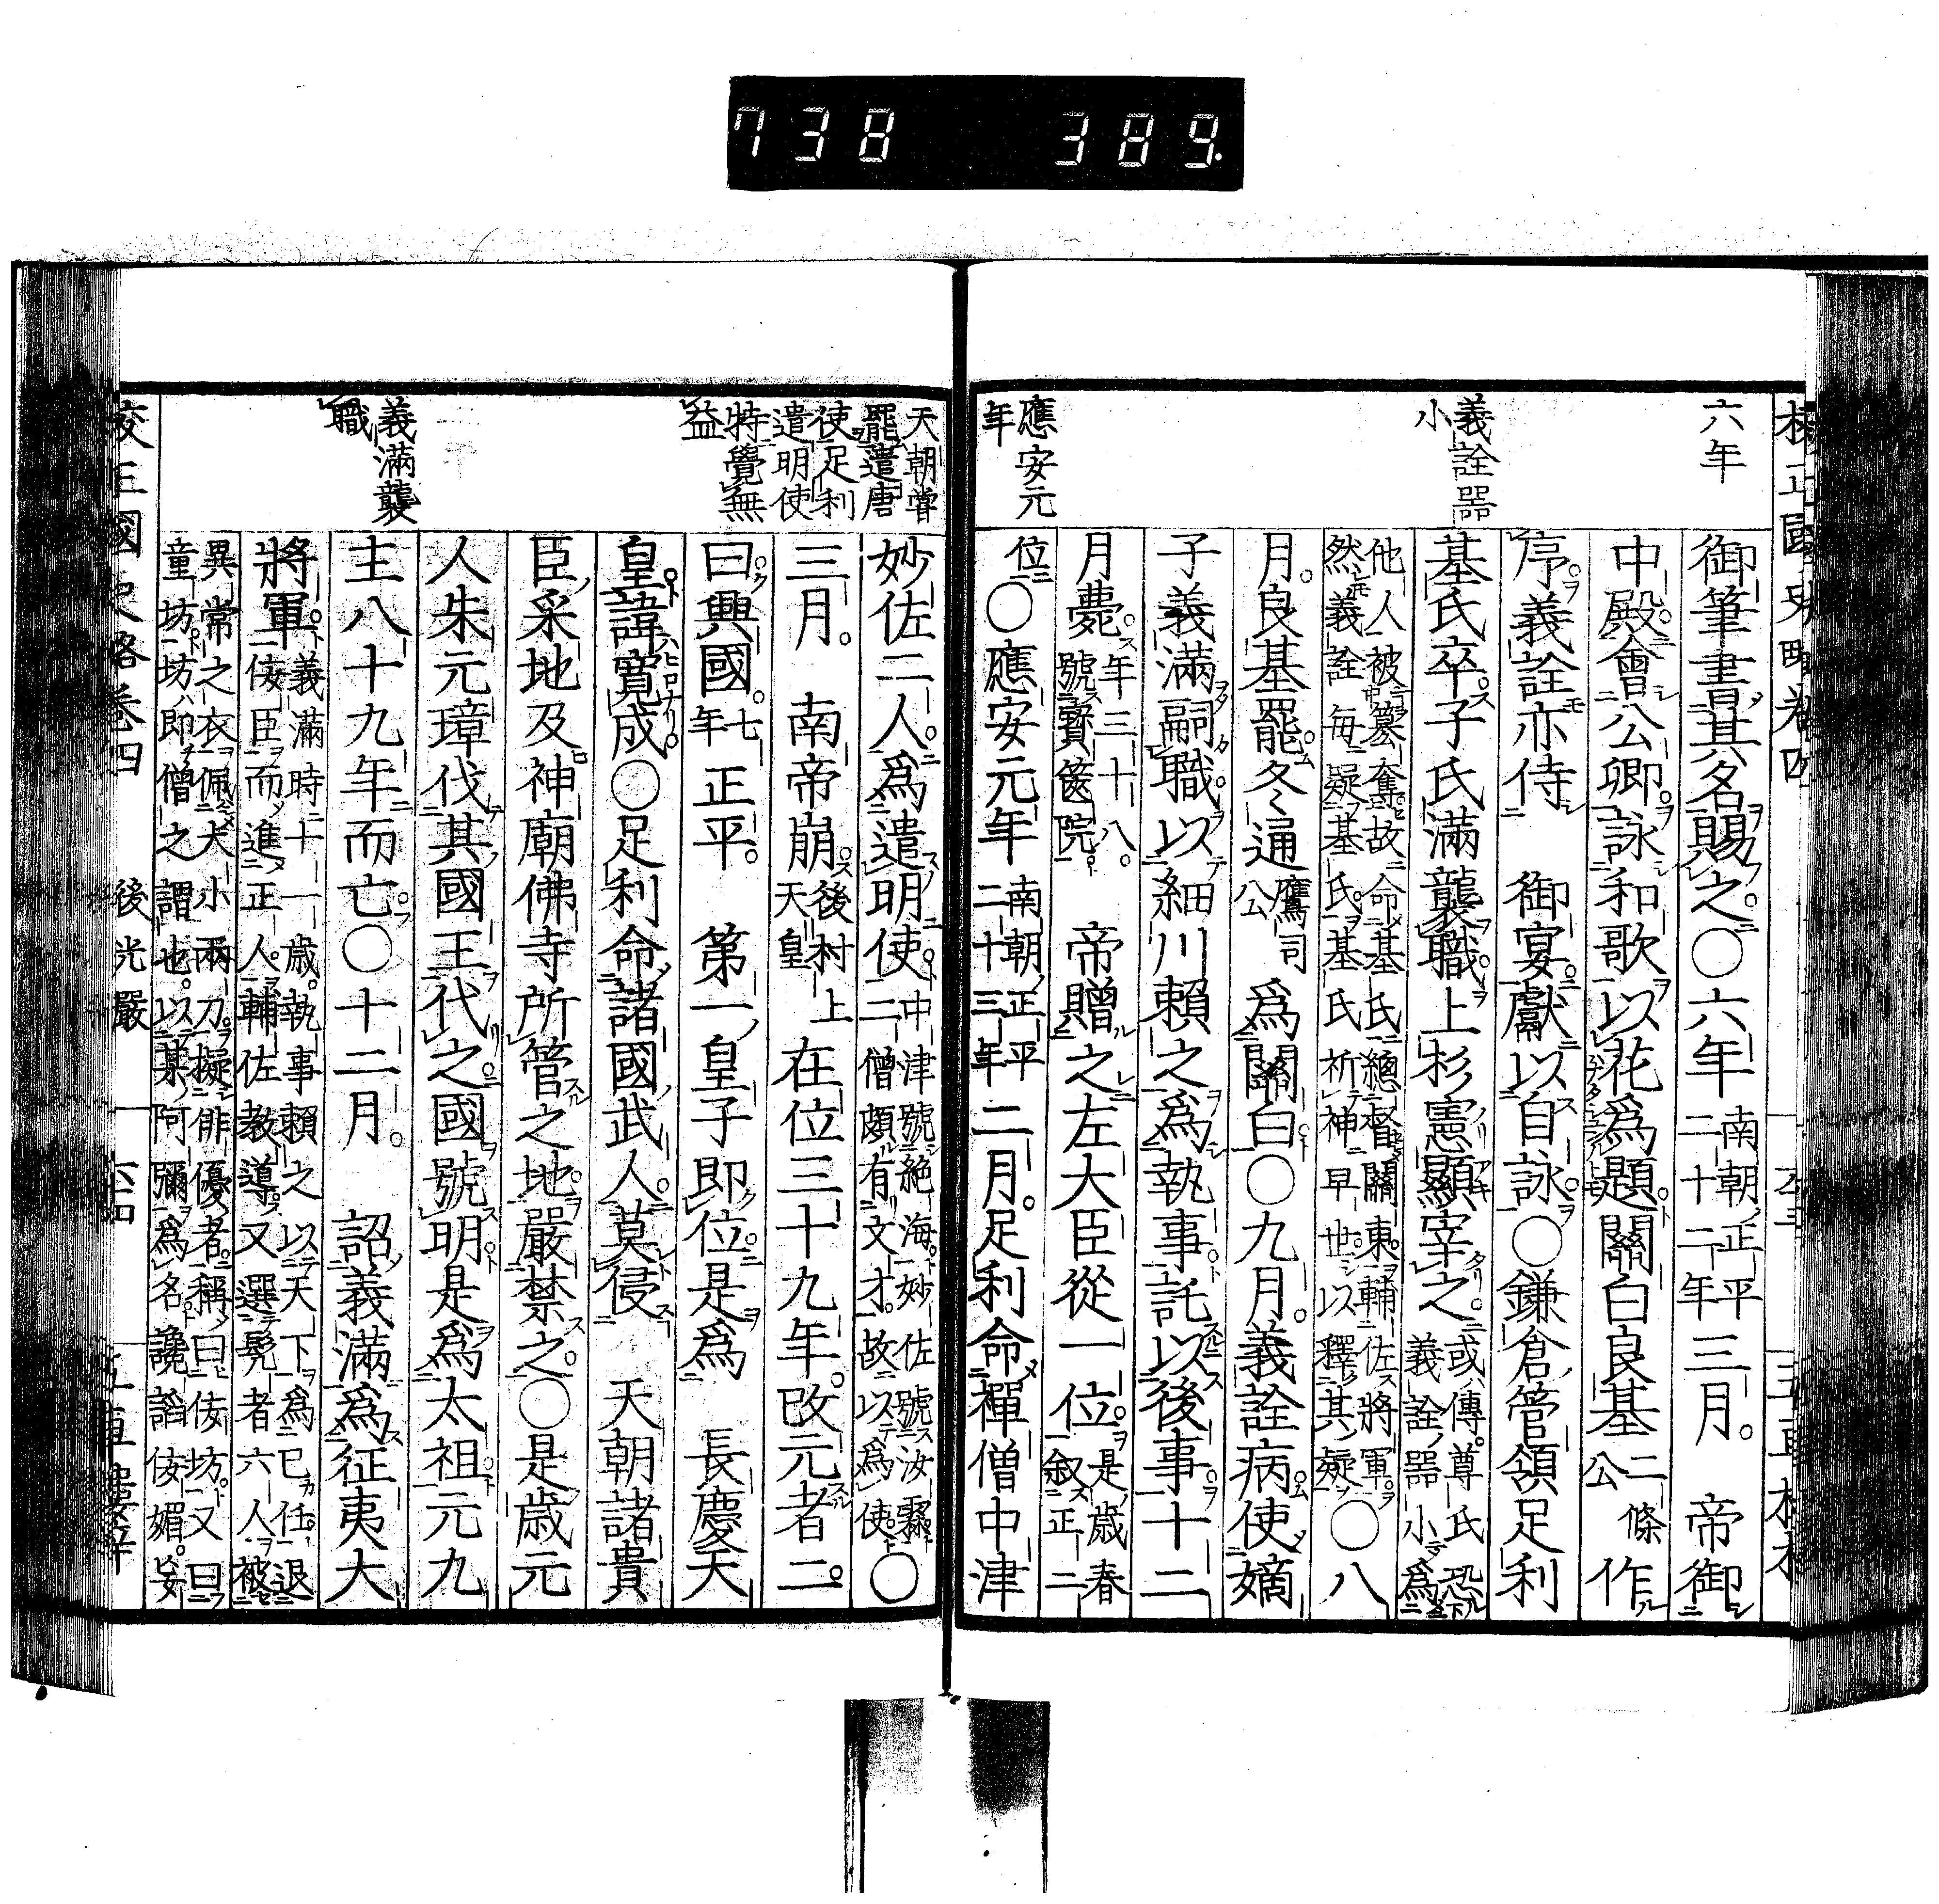 738 389.
六年
義詮器
小
應安元
年
御筆書其名賜之〇六年南朝正平二十二年三月。帝御
中殿會公卿詠和歌以花爲題關白良基二條公作
序義詮亦侍 御宴獻以自詠〇鎌倉管領足利
基氏卒子氏滿襲職上杉憲顯宰之或傳尊氏恐下爲
義詮器小爲
他人被簒奪故命基氏總督關東輔佐將軍
然義詮每疑基氏基氏祈神早世以釋其疑〇八
月良基罷冬通鷹司公爲關白〇九月義詮病使嫡
子義滿嗣職以細川賴之爲執事託以後事十二
月薨年三十八。號寶篋院 帝贈之左大臣從一位是歲春叙正二
位〇應安元年南朝正平二十三年二月。足利命禪僧中津
天朝嘗
罷遣唐
使足利
遣明使
特覺無
益
義滿襲
職
妙佐二人爲遣明使中津號絕海妙佐號汝霖二僧頗有文才故以爲使〇
三月。南帝崩後村上天皇在位三十九年改元者二。
曰興國。七年正平。 第一皇子即位是爲 長慶天
皇諱寬成〇足利命諸國武人莫侵 天朝諸貴
臣采地及神廟佛寺所管之地嚴禁之〇是歲元
人朱元璋伐其國王代之國號明是爲太祖元九
主八十九年而亡〇十二月。 詔義滿爲征夷大
將軍義滿時十一歲。執事賴之以天下爲已任退
佞臣而進正人輔佐教導又選髠者六人被
異常之衣佩大小兩刀擬俳優者稱曰佞坊又曰
童坊坊即僧之謂也。以某阿彌爲名讒諂佞媚。妄
校正國史略卷四 後光嚴